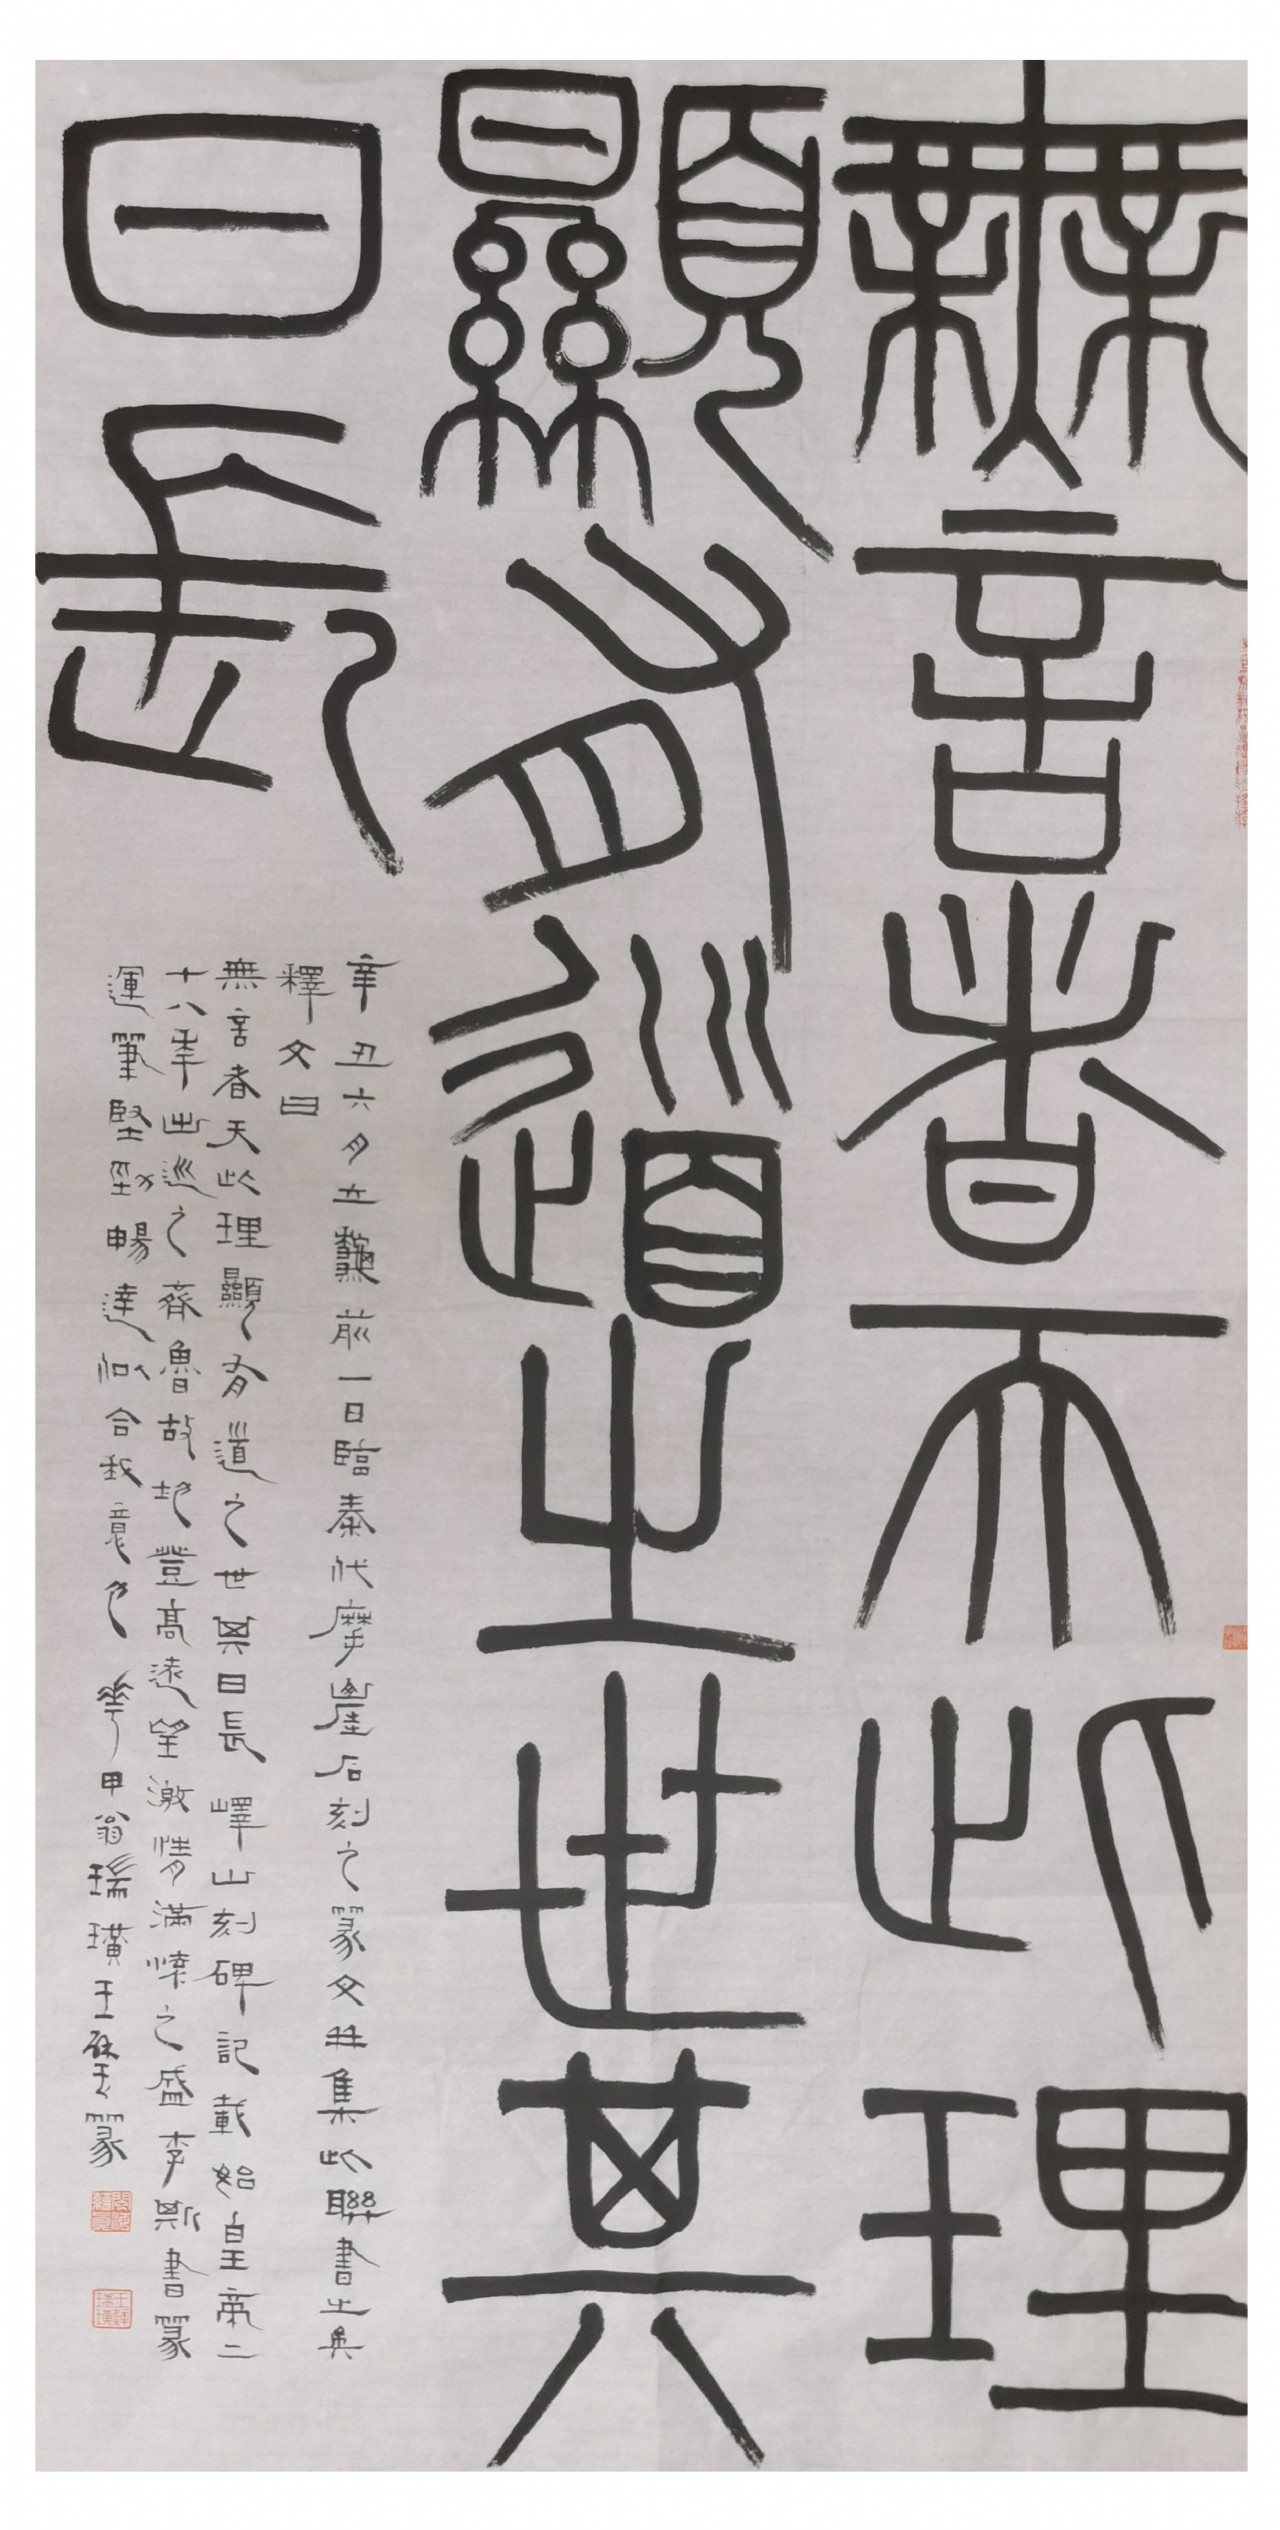 無言者天此理
顯有道之世其
日長
辛丑六月立秋前一日臨秦代摩崖石刻之篆文並集此聯書之
釋文曰
無言者天此理顯有道之世其日長 嶧山刻碑記載始皇帝二
十八年出巡之齊魯故地登高遠望激情滿懷之盛李斯書篆
運筆堅勁暢達似合我意也 華甲翁瑞璜王 篆